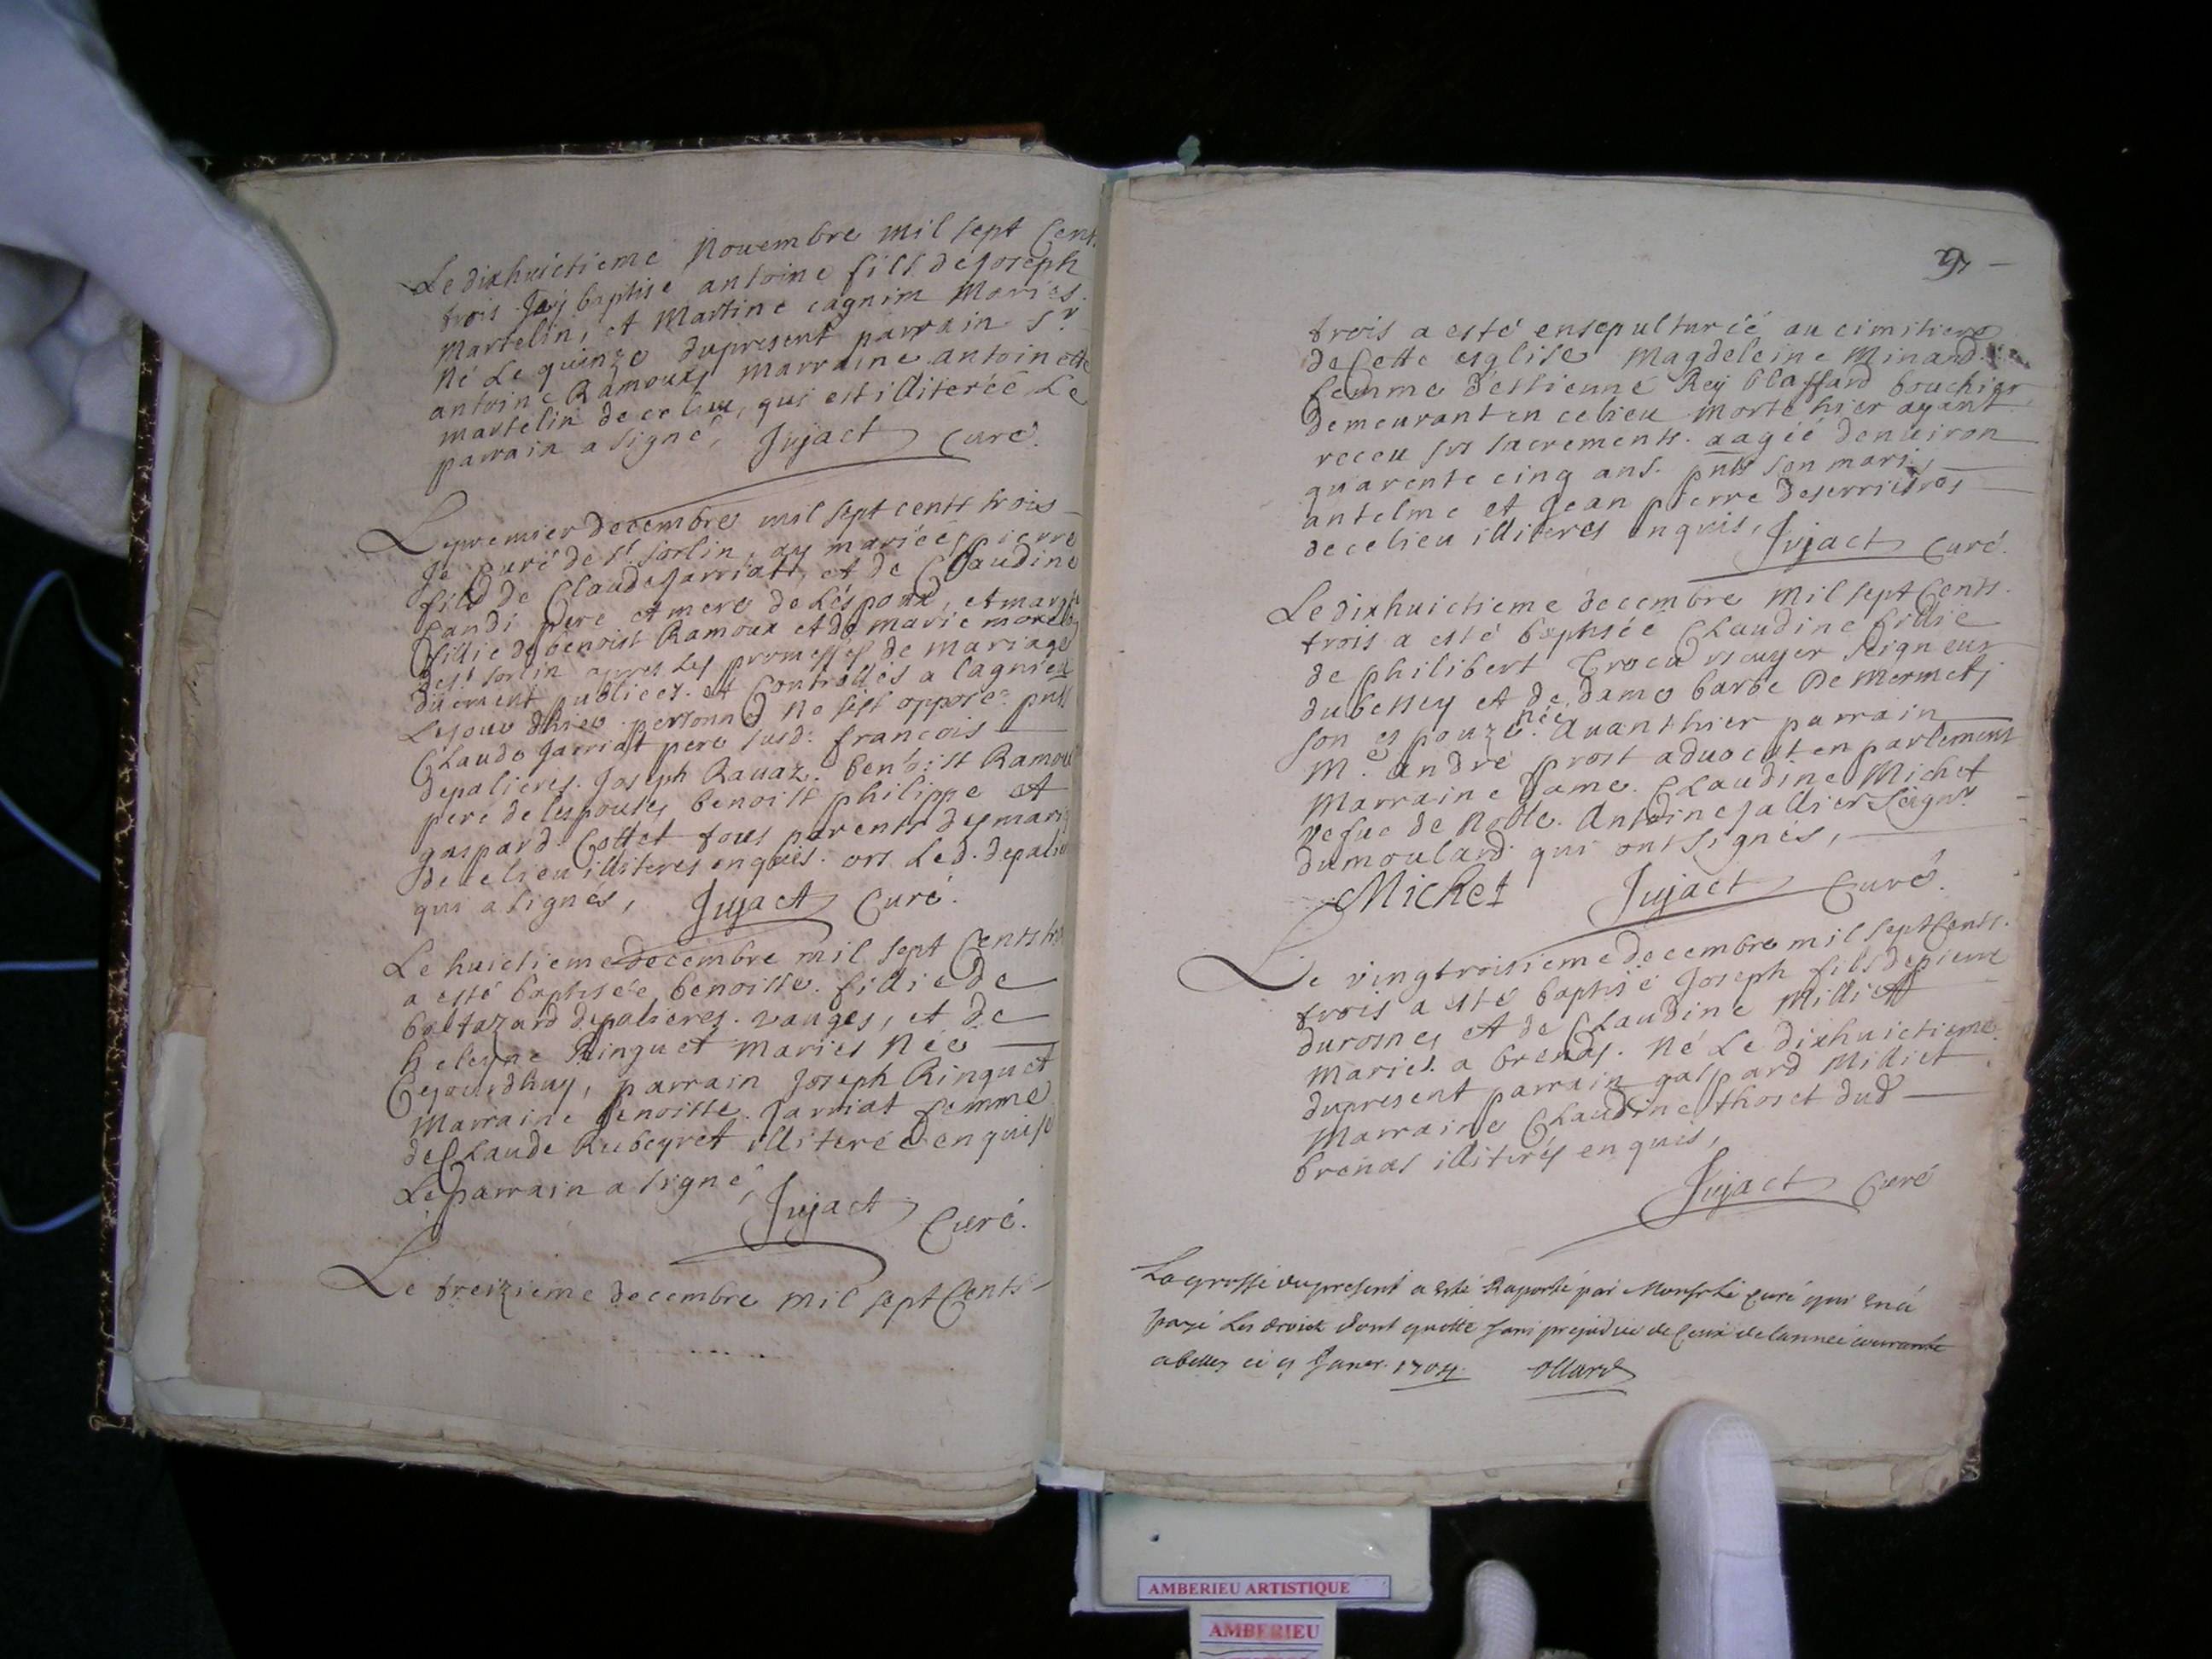 Le dixhuictieme Novembre mil sept Cents
trois J'ay baptisé antoine fils de Joseph
Martelin, et Martine cagnim Mariés.
Né Le quinze dupresent parrain Sr
antoine Ramoux marraine antoinette
martelin de ce lieu, qui est illiterée Le
parrain a signé, Jujact Curé.
Le premier decembre mil sept cents trois
Je Curé de st sorlin, ay mariées pierre
fils de Claude Jarriatt, et de Claudine
pandi pere et mere de L'espoux, et marg
fillie de benoist Ramoux et de marie morel
de st sorlin apres Les promesses de mariage
düement publiées. et Controllés a lagnieu
Lejour dhier personne ne sest opposé. pnts
Claude Jarriatt pere susd. francois
depalieres. Joseph Ravaz. benoist Ramou
pere de lespouse, benoist philippe et
gaspard Cottet tous parents des mari
de ce lieu illiteres enquis. ors Led. depalie
qui a signés, Jujact Curé.
Le huictieme decembre mil sept Cents tr
a esté baptisée benoiste. fillie de
baltazard depalieres. vauges, et de
heleyne Ringuet mariés Née
Cejourdhuy, parrain Joseph Ringuet
marraine benoiste Jarriat femme
de Claude Rubeyret illiterée enquise
Le parrain a signé, Jujact
Curé.
Le treizieme decembre mil sept Cents
9
trois a esté ensepulturéé au cimitiere
de Cette esglise Magdeleine Minand
femme d'estienne Rey blaffard bouchier
demeurant en ce lieu morte hier ayant
receu ses sacrements. aagéé denviron
quarente cinq ans. pnts son mari,
antelme et Jean pierre deserrieres
de ce lieu illiteres enquis, Jujact Curé.
Le dixhuictieme decembre mil sept Cents.
trois a esté baptisée Claudine fillie
de philibert Trocu escuyer seigneur
dubessey et de dame barbe de mermets
son espouze. née avanthier parrain
Me. andré prost advocat en parlement
marraine dame. Claudine Michet
vefue de Noble. Antoine Jallier Seignr
dumoulard qui ont signés,
Michet Jujact Curé.
Le vingtroisieme decembre mil sept Cents.
trois a esté baptisé Joseph fils de pierre
duromes et de Claudine Milliet
mariés. a brenas. Né Le dixhuictieme
dupresent parrain gaspard Milliet
marraine Claudine thoset dud
brenas illiterés enquis,
Jujact Curé
La grosse du present a esté Raporté par Monsr Le curé qui en a
payé Les droict dont quitte sans prejudice de Ceux de lannee courante
a belley ce 9 Janer. 1704 Ollard
AMBERIEU ARTISTIQUE
AMBERIEU